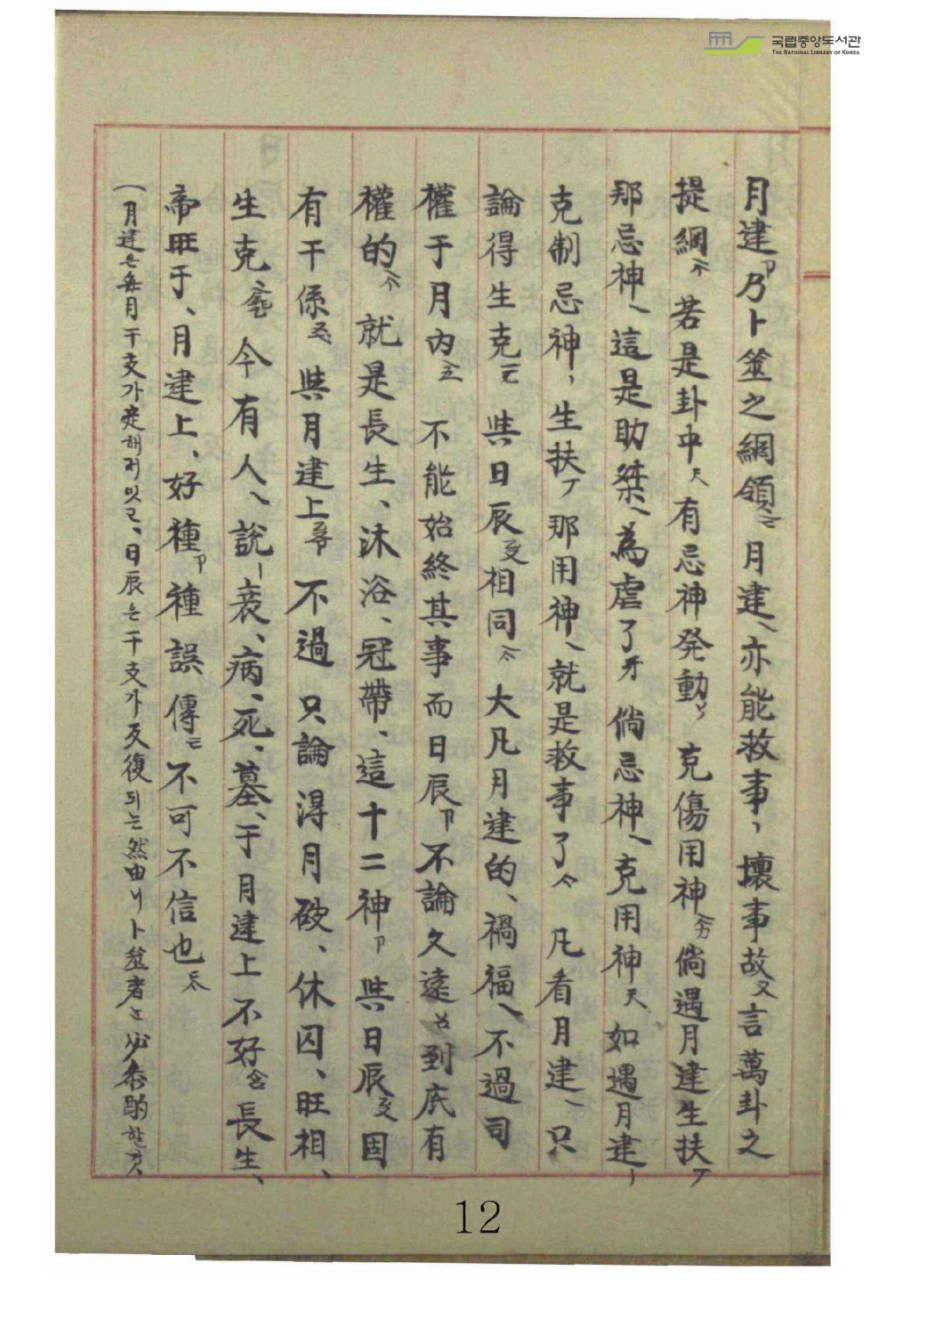 국립중앙도서관
THE NATIONAL LIBRARY OF KOREA
月建卩 乃卜筮之綱領 月建、亦能救事、壞事故又言萬卦之
提綱 若是卦中 有忌神発動 克傷用神 倘遇月建生扶
那忌神、這是助桀、為虐了 倘忌神、克用神 如遇月建、
克制忌神、生扶 那用神、就是救事了 凡看月建、只
論得生克 㒷日辰 相同 大凡月建的、禍福、不過司
權于月內 不能始終其事而日辰卩 不論久遠 到底有
權的 就是長生、沐浴、冠帶、這十二神卩 㒷日辰 固
有干係 㒷月建上 不過 只論 得月破、休囚、旺相、
生克 今有人、說 衰、病、死、墓、于月建上不好 長生、
帝旺于、月建上、好種卩 種誤傳 不可不信也
(月建는 每月干支가 定해저잇고、日辰은 干支가 反復되는 然由 卜筮者 必參酌할것
12